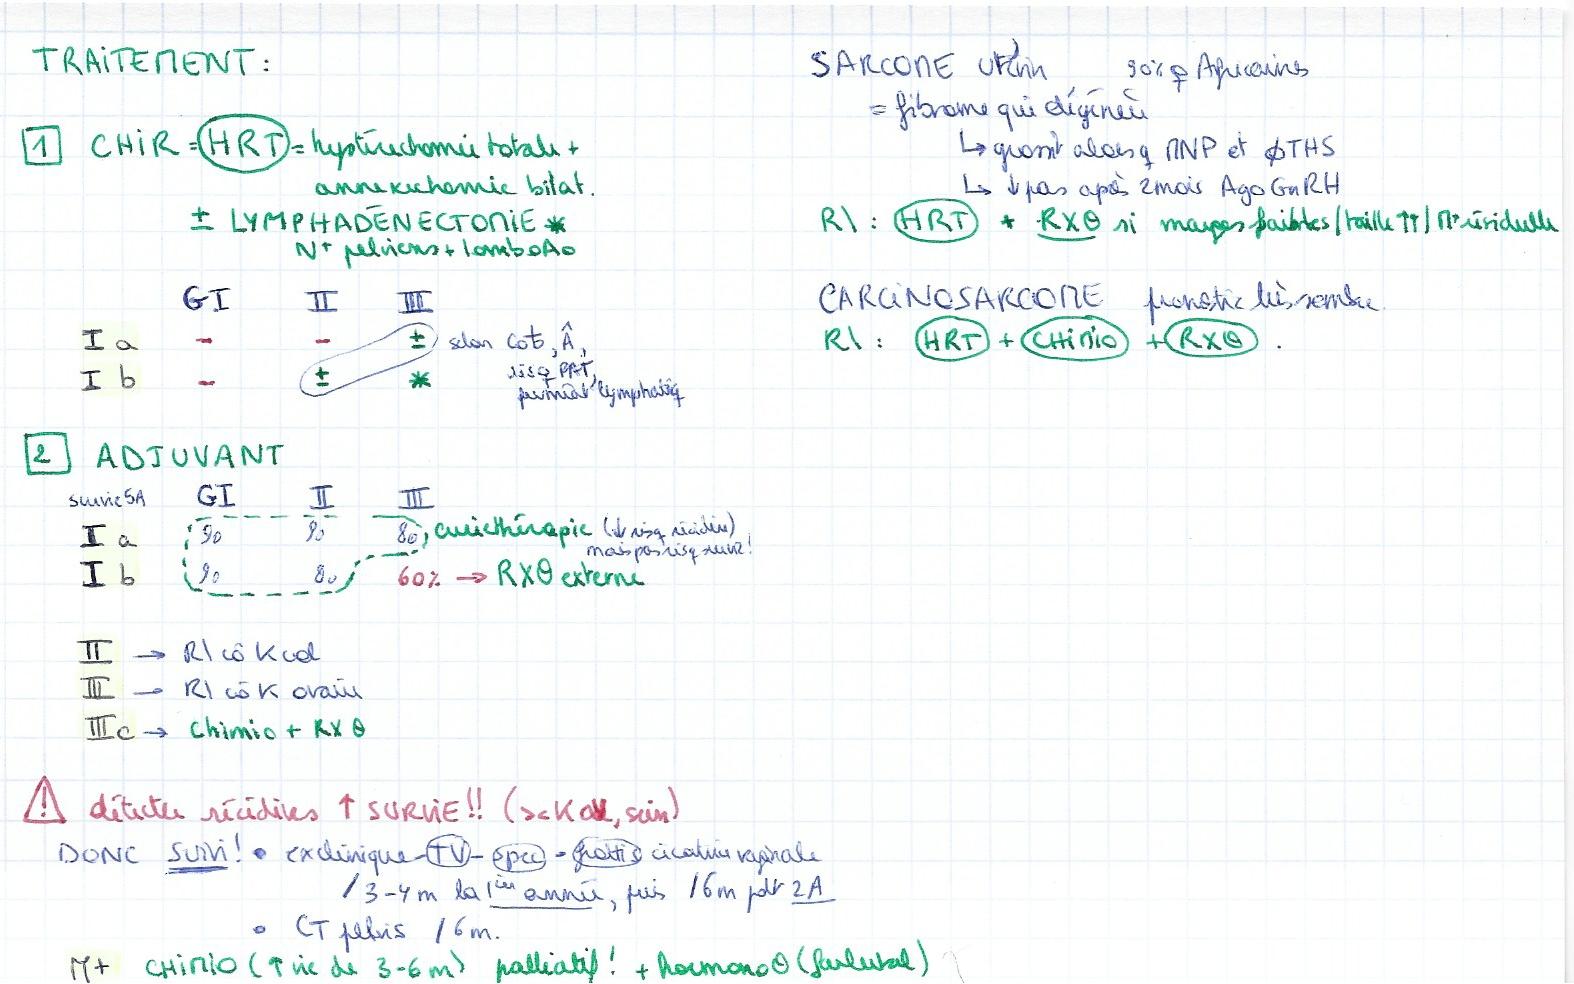 TRAITEMENT :
1 CHIR = HRT = hystérectomie totale +
annexectomie bilat.
± LYMPHADÉNECTOMIE *
N+ pelviens + lomboAo
GI II III
I a - - ± selon cot, Â,
risq PRT,
I b - ± * lymphatiq
2 ADJUVANT
survie 5A GI II III
I a 90 90 80 curiethérapie (↓ risq récidive)
mais pas risq survie !
I b 90 80 60% → RXθ externe
II → R\ cô K col
III → R\ cô K ovaire
IIIc → Chimio + RXθ
⚠ détecter récidives ↑ SURVIE !! (>< K ov, sein)
DONC SUIVI ! • ex clinique - TV - spec - frottis cicatrice vaginale
/ 3-4 m la 1ière année, puis /6m pdt 2A
• CT pelvis /6m.
M+ CHIMIO (↑ vie de 3-6 m) palliatif ! + hormonoθ (farlutal)
SARCOME utérin 90% ♀ Africaines
= fibrome qui dégénère
↳ grossit alors q MNP et ∅ THS
↳ ↓ pas après 2 mois Ago GnRH
R\ : HRT + RXθ si marges faibles / taille ↑↑ / M+ résiduelle
CARCINOSARCOME pronostic très sombre.
R\ : HRT + CHIMIO + RXθ .